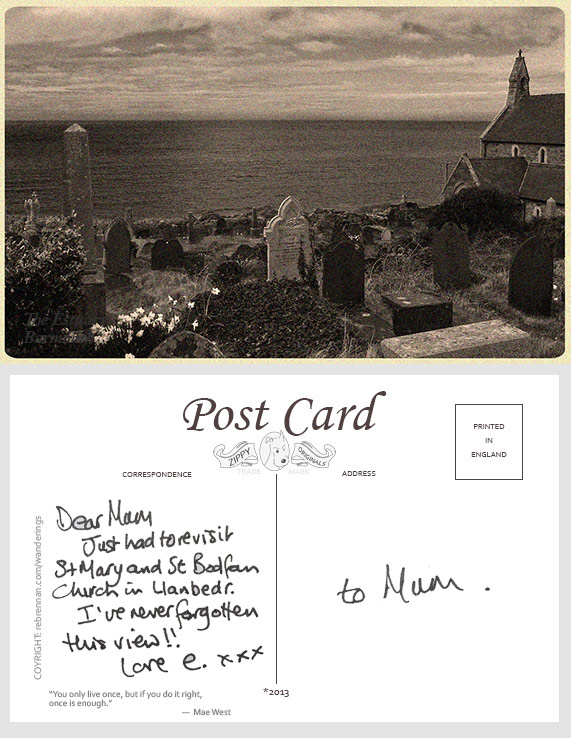 Post Card
ZIPPY
ORIGINALS
TRADE
MARK
PRINTED
IN
ENGLAND
CORRESPONDENCE
ADDRESS
Dear Mum
Just had to revisit
St Mary and St Bodfan
Church in Llanbedr.
I've never forgotten
this view!!
Love e. xxx
to Mum .
COYRIGHT: rebrennan.com/wanderings
"You only live once, but if you do it right,
once is enough."
— Mae West
*2013